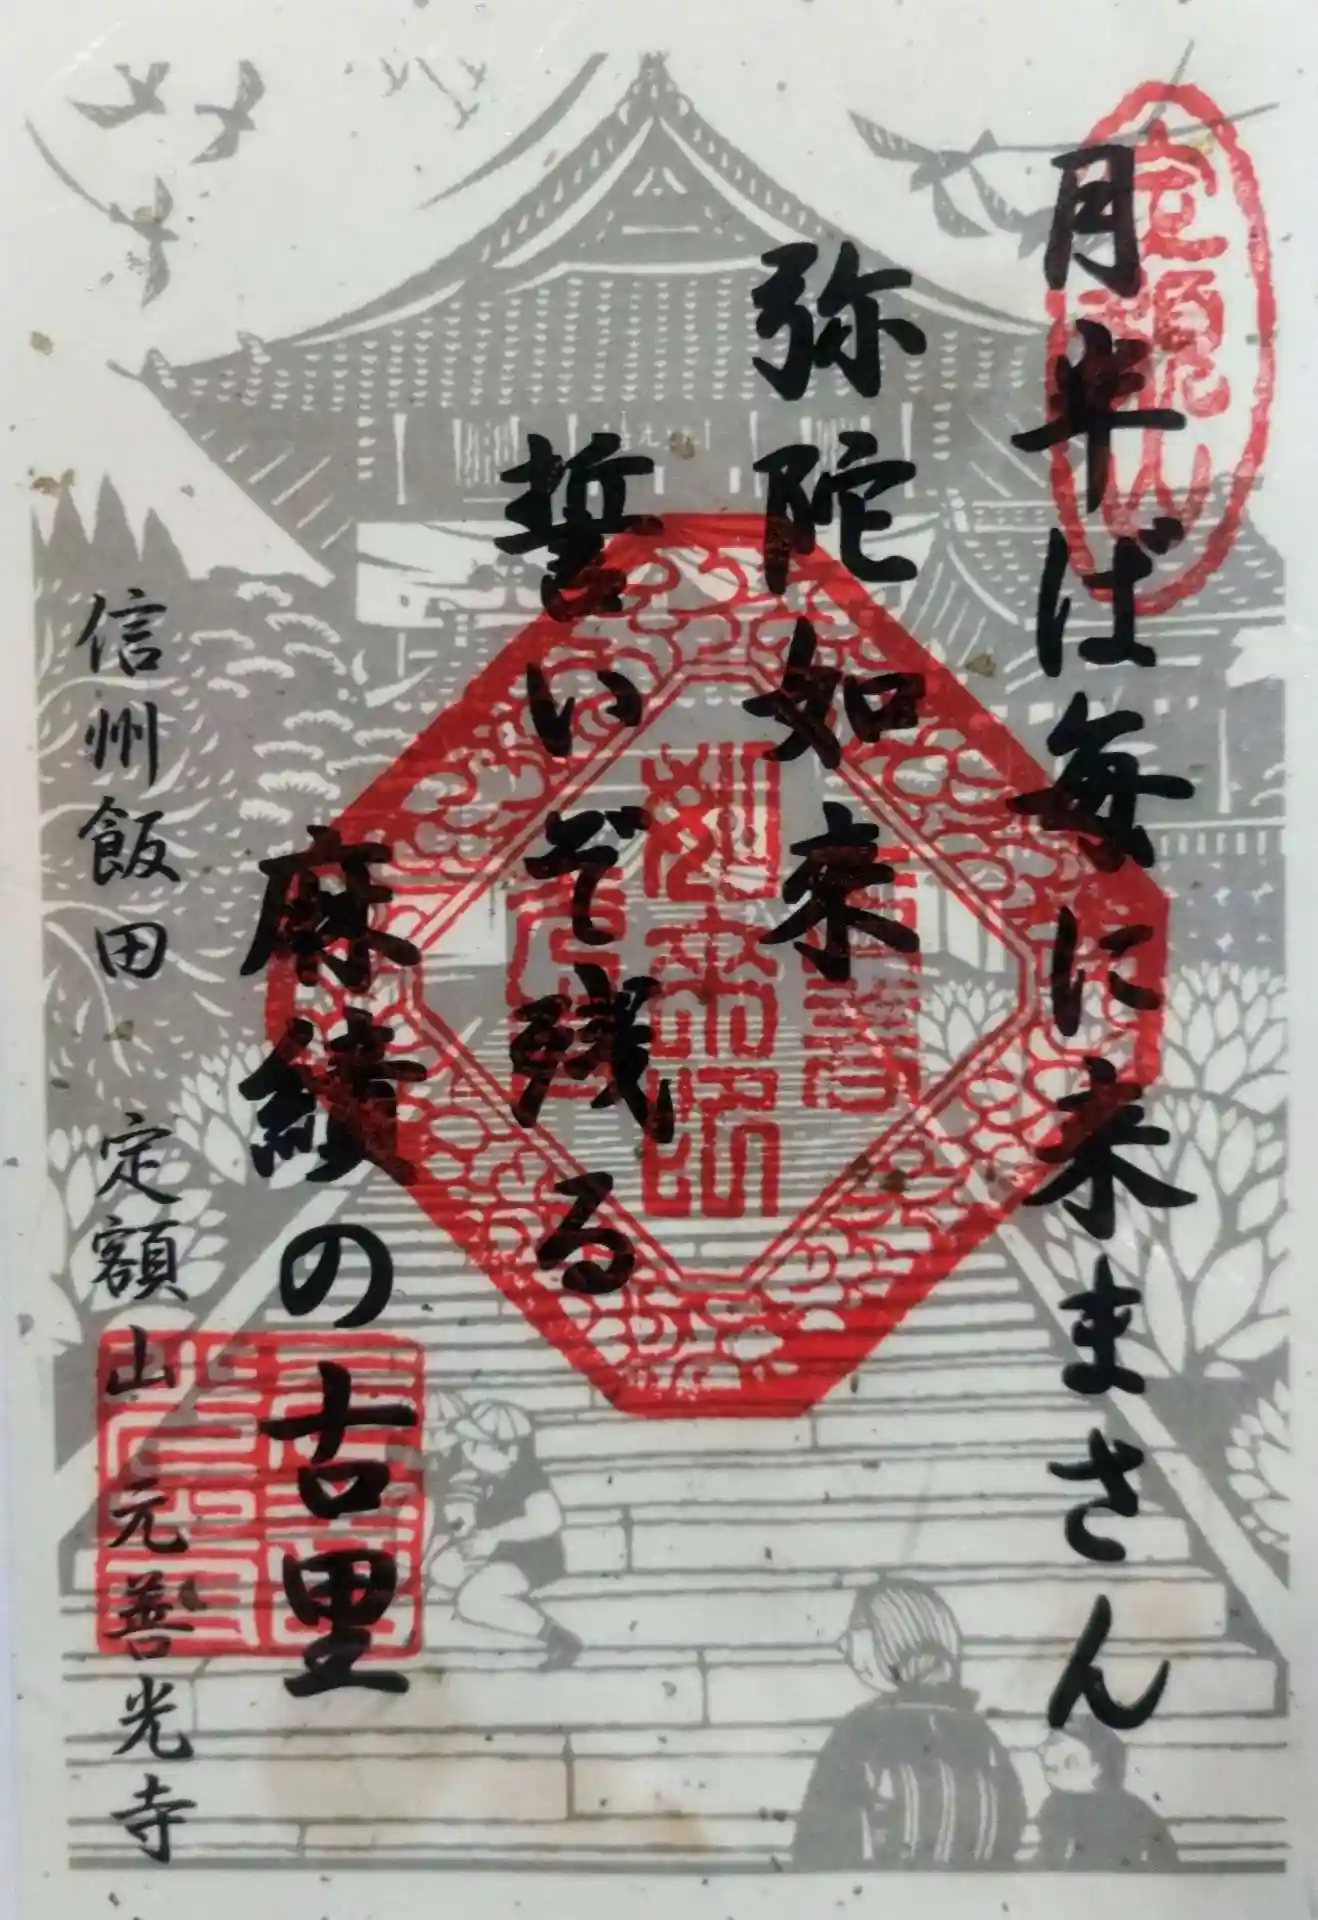 月半ば毎に来まさん
弥陀如来
誓いぞ残る
麻績の古里
信州飯田 定額山 元善光寺
定額山
如来印